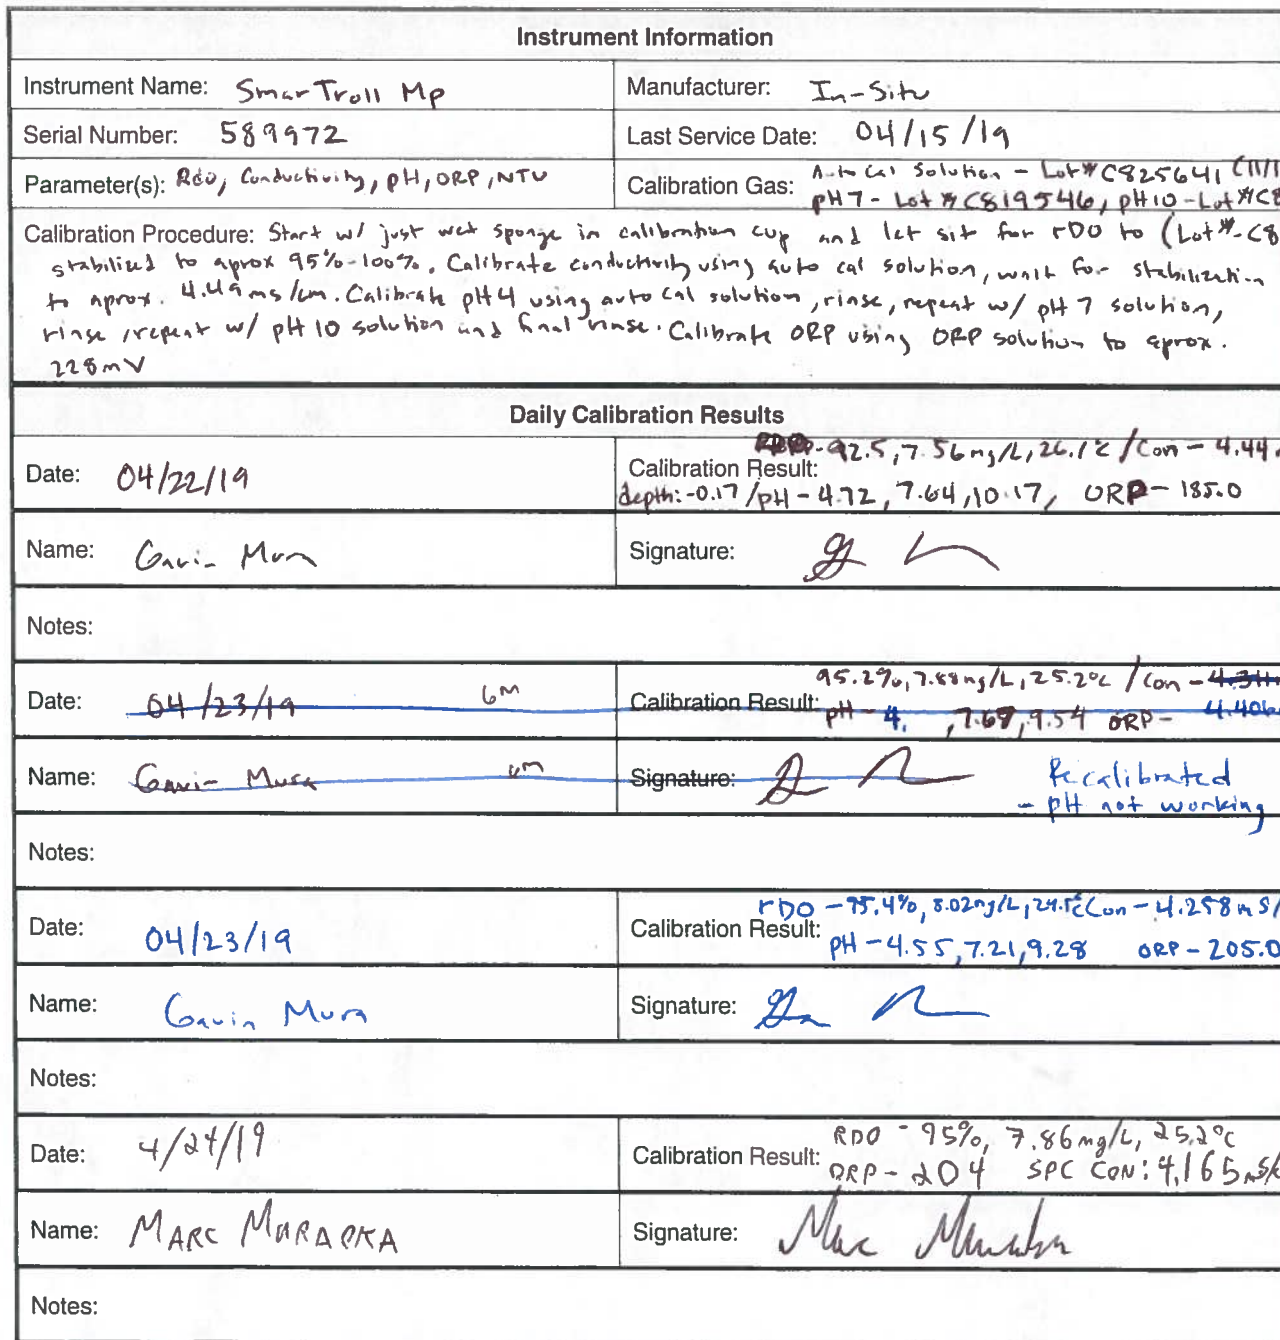 Instrument Information
Instrument Name: SmarTroll Mp
Manufacturer: In-Situ
Serial Number: 589972
Last Service Date: 04/15/19
Parameter(s): RDO, Conductivity, pH, ORP, NTU
Calibration Gas: Auto Cal Solution - Lot# C825641 (11/1
pH 7 - Lot # C819546, pH 10 - Lot #C8
Calibration Procedure: Start w/ just wet sponge in calibration cup and let sit for rDO to (Lot#-C8
stabilized to aprox 95%-100%. Calibrate conductivity using auto cal solution, wait for stabilization
to aprox. 4.49 ms/cm. Calibrate pH4 using auto cal solution, rinse, repeat w/ pH 7 solution,
rinse, repeat w/ pH 10 solution and final rinse. Calibrate ORP using ORP solution to aprox.
228mV
Daily Calibration Results
Date: 04/22/19
Calibration Result: -92.5, 7.56mg/L, 26.1°C / Con - 4.44
depth: -0.17 / pH - 4.72, 7.64, 10.17, ORP - 185.0
Name: Gavin Mura
Signature:
Notes:
Date: 04/23/19 GM
Calibration Result: 95.2%, 7.88mg/L, 25.2°C / Con -
pH - 4. , 7.69, 9.54 ORP - 4.406
Name: Gavin Mura GM
Signature:
Recalibrated
- pH not working
Notes:
Date: 04/23/19
Calibration Result: rDO - 95.4%, 8.02mg/L, Con - 4.258 mS/
pH - 4.55, 7.21, 9.28 ORP - 205.0
Name: Gavin Mura
Signature:
Notes:
Date: 4/24/19
Calibration Result: RDO - 95%, 7.86 mg/L, 25.2°C
ORP - 204 SPC CON: 4.165 mS/
Name: MARC MURAOKA
Signature: Marc Muraoka
Notes: